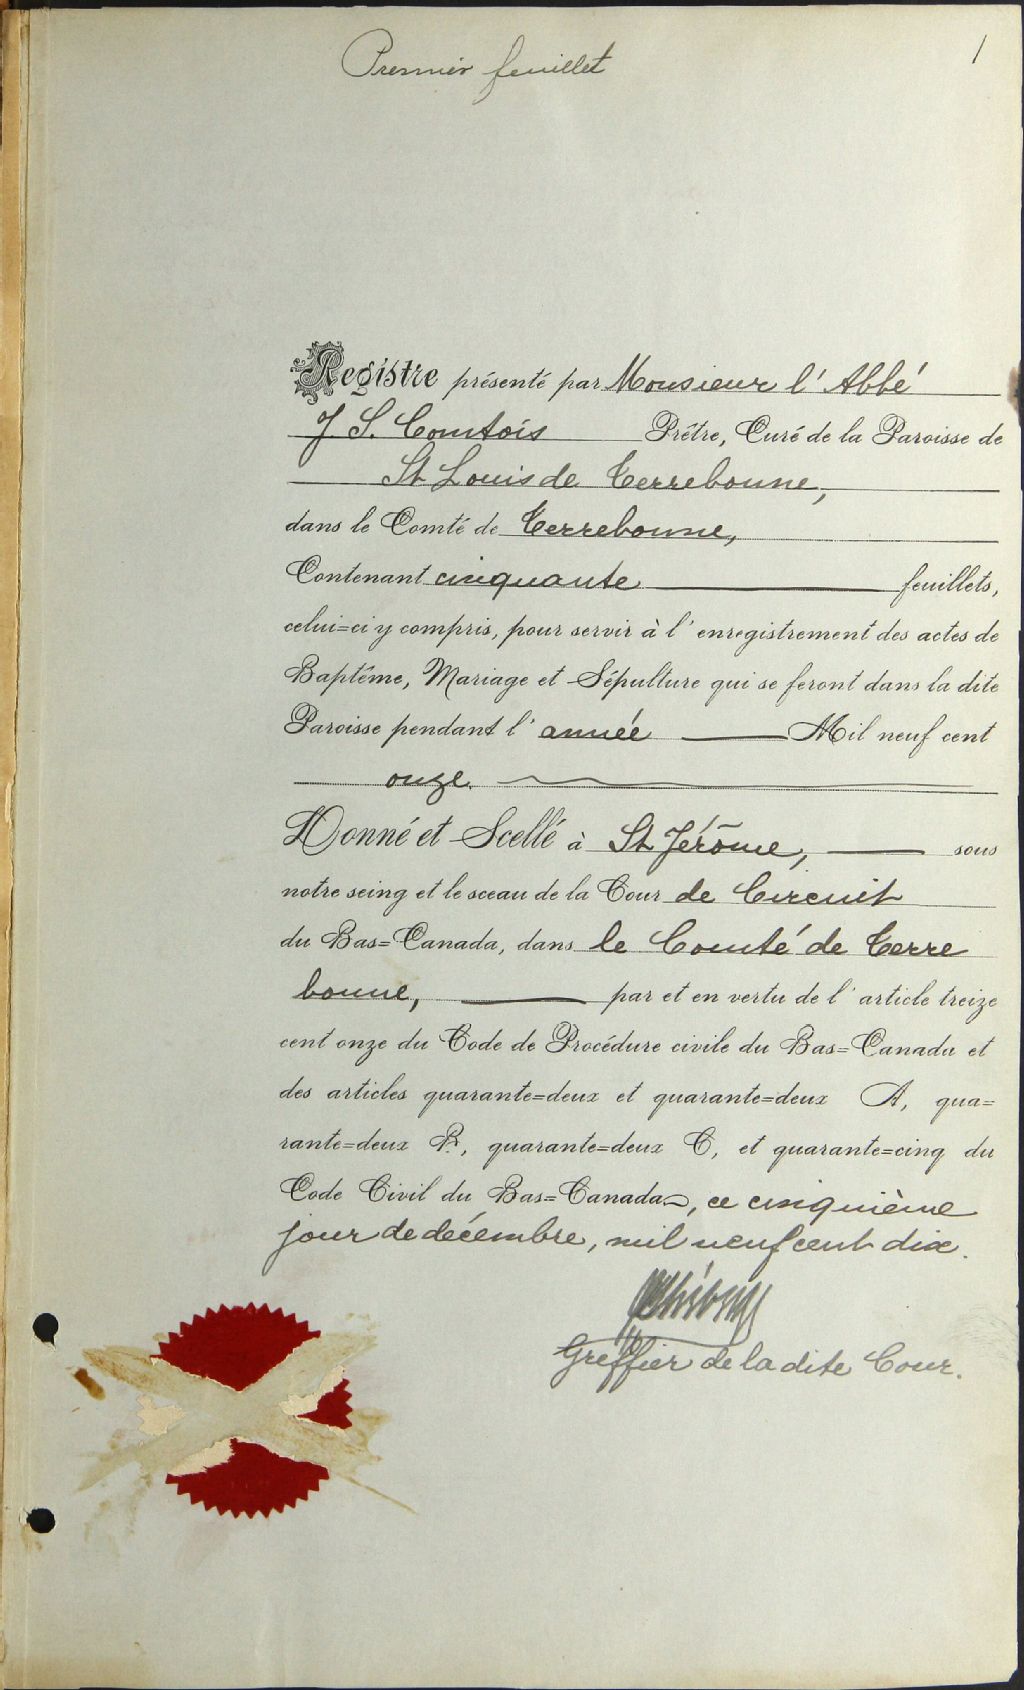 Premier feuillet
1
Registre présenté par Monsieur l'Abbé
J. S. Comtois Prêtre, Curé de la Paroisse de
St Louis de Terrebonne,
dans le Comté de Terrebonne,
Contenant cinquante feuillets,
celui=ci y compris, pour servir à l'enregistrement des actes de
Baptême, Mariage et Sépulture qui se feront dans la dite
Paroisse pendant l'année Mil neuf cent
onze.
Donné et Scellé à St Jérôme, sous
notre seing et le sceau de la Cour de Circuit
du Bas=Canada, dans le Comté de Terre
bonne, par et en vertu de l'article treize
cent onze du Code de Procédure civile du Bas=Canada et
des articles quarante=deux et quarante=deux A, qua=
rante=deux B, quarante=deux C, et quarante=cinq du
Code Civil du Bas=Canada, ce cinquième
jour de décembre, mil neuf cent dix.
Greffier de la dite Cour.